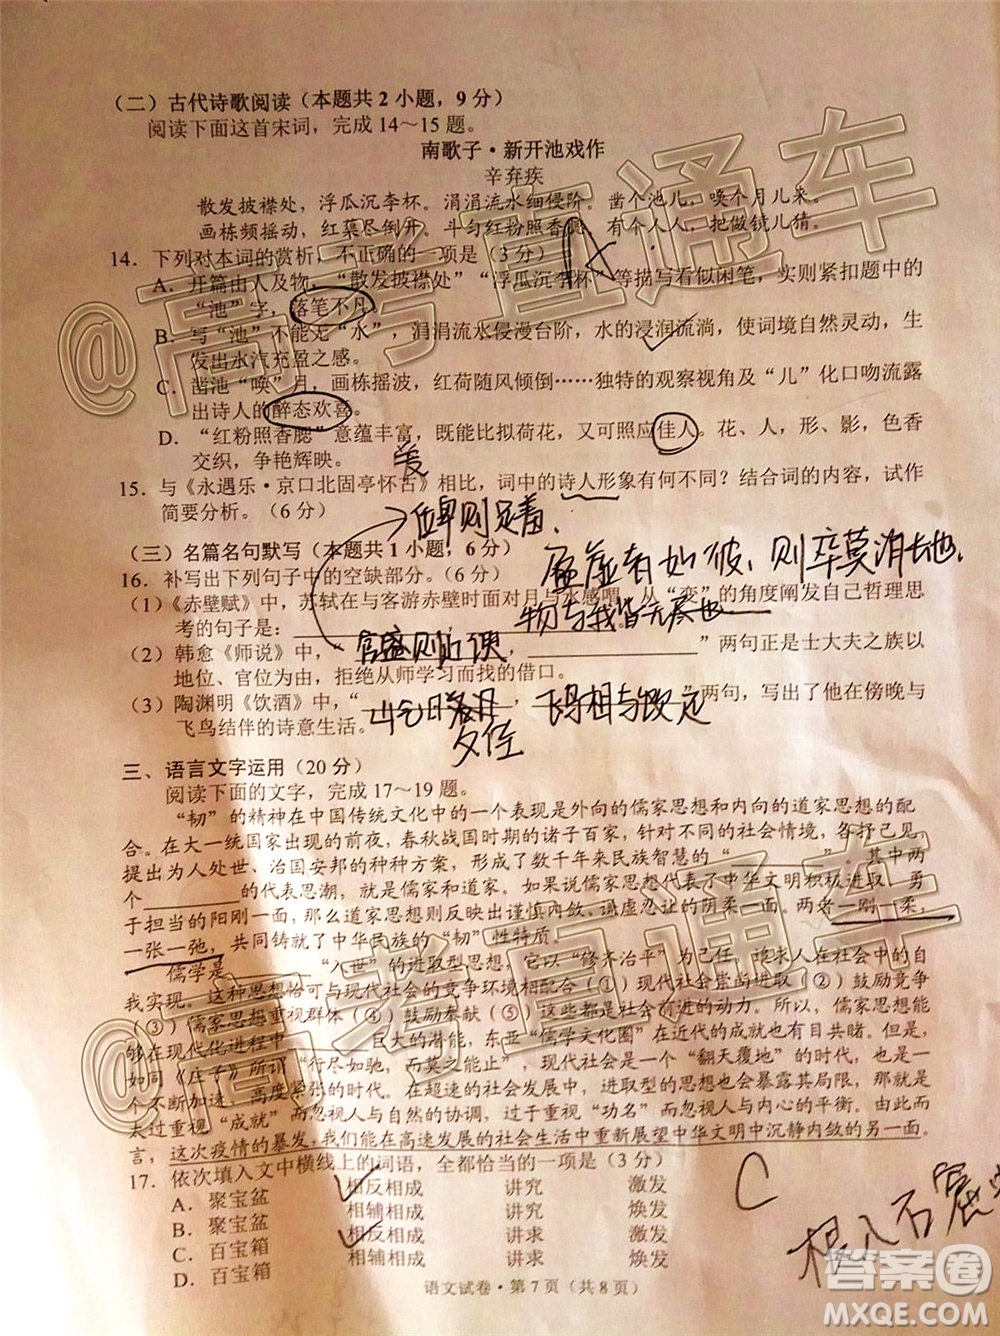 (二)古代诗歌阅读(本题共2小题，9分)
阅读下面这首宋词，完成14～15题。
南歌子·新开池戏作
辛弃疾
散发披襟处，浮瓜沉李杯。涓涓流水细侵阶。凿个池儿，唤个月儿来。
画栋频摇动，红蕖尽倒开。斗匀红粉照香腮。有个人人，把做镜儿猜。
14．下列对本词的赏析，不正确的一项是(3分)
A．开篇由人及物，“散发披襟处”“浮瓜沉李杯”等描写看似闲笔，实则紧扣题中的
“池”字，落笔不凡。
B．写“池”不能无“水”，涓涓流水侵漫台阶，水的浸润流淌，使词境自然灵动，生
发出水汽充盈之感。
C．凿池“唤”月，画栋摇波，红荷随风倾倒……独特的观察视角及“儿”化口吻流露
出诗人的醉态欢喜。
D．“红粉照香腮”意蕴丰富，既能比拟荷花，又可照应佳人。花、人，形、影，色香
交织，争艳辉映。
15．与《永遇乐·京口北固亭怀古》相比，词中的诗人形象有何不同？结合词的内容，试作
简要分析。(6分)
位卑则足羞，
(三)名篇名句默写(本题共1小题，6分)
盈虚者如彼，则卒莫消长也，
16．补写出下列句子中的空缺部分。(6分)
(1)《赤壁赋》中，苏轼在与客游赤壁时面对月与水感喟，从“变”的角度阐发自己哲理思
考的句子是：
物与我皆无尽也
(2)韩愈《师说》中，“官盛则近谀，”两句正是士大夫之族以
地位、官位为由，拒绝从师学习而找的借口。
(3)陶渊明《饮酒》中，“山气日夕佳，飞鸟相与还”两句，写出了他在傍晚与
飞鸟结伴的诗意生活。
三、语言文字运用(20分)
阅读下面的文字，完成17～19题。
“韧”的精神在中国传统文化中的一个表现是外向的儒家思想和内向的道家思想的配
合。在大一统国家出现的前夜，春秋战国时期的诸子百家，针对不同的社会情境，各抒己见，
提出为人处世、治国安邦的种种方案，展示了数千年来民族智慧的“　　”。其中两
个　　的代表思潮，就是儒家和道家。如果说儒家思想代表了中华文明积极进取、勇
于担当的阳刚一面，那么道家思想则反映出谨慎内敛、谦虚忍让的阴柔一面。两者一刚一柔，
一张一弛，共同铸就了中华民族的“韧”性特质。
儒学是　　“入世”的进取型思想，它以“修齐治平”为己任，追求人在社会中的自
我实现。这种思想恰可与现代社会的竞争环境相配合(①)以社会崇尚进取(②)鼓励竞争
(③)儒家思想重视群体(④)鼓励奉献(⑤)这些都是社会前进的动力。所以，儒家思想能
够在现代化进程中　　巨大的潜能，东亚“儒学文化圈”在近代的成功有目共睹。但是，
如同《庄子》所谓“行尽如驰，而莫之能止”，现代社会是一个“翻天覆地”的时代，是一
个不断加速、高度紧张的时代。在超速的社会发展中，进取型的思想也会暴露其局限，比如
过于重视“成就”而忽视人与自然的协调，过于重视“功名”而忽视人与内心的平衡。由此
言，这次疫情的暴发，我们能在高速发展的社会生活中重新展望中华文明中沉静内敛的另一面。
17．依次填入文中横线上的词语，全都恰当的一项是(3分)
A．聚宝盆　相反相成　讲究　激发
B．聚宝盆　相辅相成　讲究　焕发
C．百宝箱　相反相成　讲求　激发
D．百宝箱　相辅相成　讲求　焕发
C
语文试卷·第7页(共8页)
答案圈
MXQE.COM
@高考直通车
@高考直通车